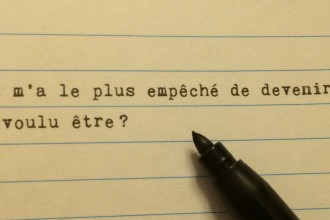 m'a le plus empêché de devenir
voulu être?